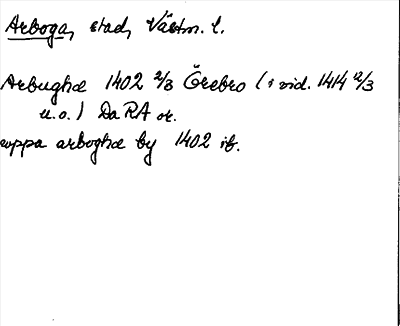 Arboga, stad, Västm. l.
Arbughæ 1402 2/3 Örebro (i vid. 1414 12/3
u.o.) DaRA or.
uppa arboghæ by 1402 ib.